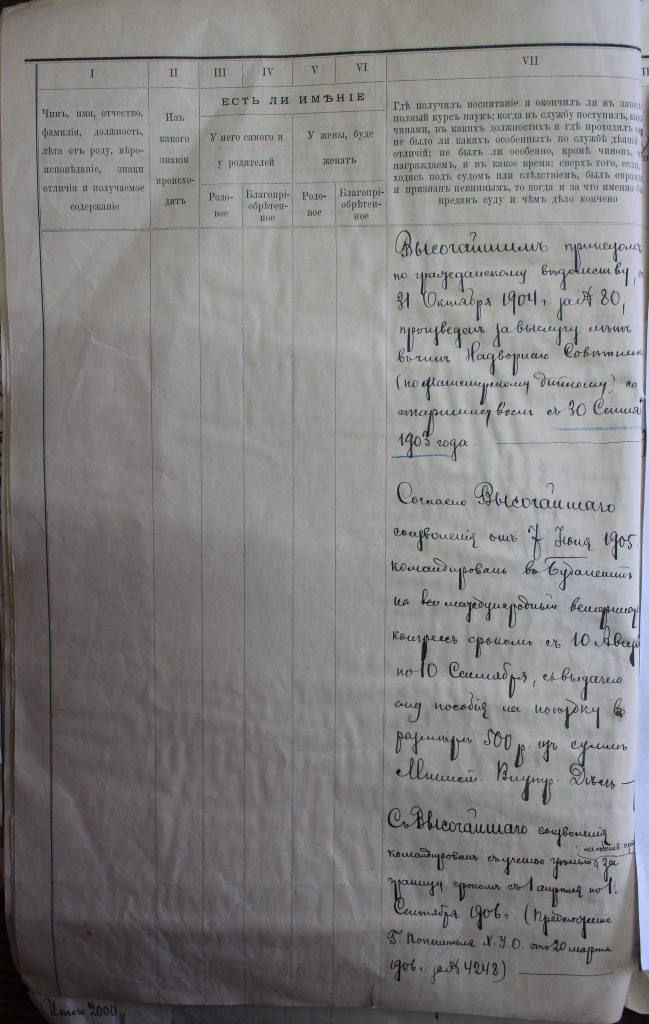 I II III IV V VI VII
Чинъ, имя, отчество,
фамилія, должность,
лѣта отъ роду, вѣро-
исповѣданіе, знаки
отличія и получаемое
содержаніе
Изъ
какого
званія
происхо-
дитъ
ЕСТЬ ЛИ ИМѢНІЕ
У него самого и
у родителей
У жены, буде
женатъ
Родо-
вое
Благопрі-
обрѣтен-
ное
Родо-
вое
Благопрі-
обрѣтен-
ное
Гдѣ получилъ воспитаніе и окончилъ ли въ завед
полный курсъ наукъ; когда въ службу поступилъ, как
чинами, въ какихъ должностяхъ и гдѣ проходилъ о
не было ли какихъ особенныхъ по службѣ дѣяній
отличій; не былъ ли особенно, кромѣ чиновъ, ч
награждаемъ, и въ какое время; сверхъ того, если,
ходясь подъ судомъ или слѣдствіемъ, былъ оправд
и признанъ невиннымъ, то когда и за что именно б
преданъ суду и чѣмъ дѣло кончено
Высочайшимъ приказомъ
по гражданскому вѣдомству, о
31 Октября 1904 г. за № 80,
произведенъ за выслугу лѣтъ
въ чинъ Надворнаго Совѣтник
(по Магистерскому диплому) со
старшинствомъ съ 30 Сентя
1903 года.
Согласно Высочайшаго
соизволенія отъ 7 Іюня 1905.
командированъ въ Будапештъ
на международный ветеринар
конгрессъ срокомъ съ 10 Авгус
по 10 Сентября, съ выдачею
ему пособія на поѣздку въ
размѣрѣ 500 р. изъ суммъ
Минист. Внутр. Дѣлъ
Съ Высочайшаго соизволенія
командированъ съ ученою цѣлью за
границу срокомъ съ 1 апрѣля по 1
Сентября 1906 г. (Предложеніе
Г. Попечителя Х. У. О. отъ 20 марта
1906 г. за № 4248)
Итого 2000 р